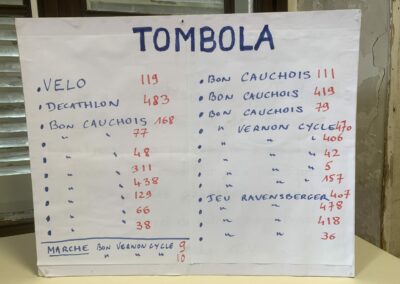 TOMBOLA
• VELO 119
• DECATHLON 483
• BON CAUCHOIS 168
• " " 77
• " " 48
• " " 311
• " " 438
• " " 129
• " " 66
• " " 38
MARCHE BON VERNON CYCLE 9
" " " 10
• BON CAUCHOIS 111
• BON CAUCHOIS 419
• BON CAUCHOIS 79
• " VERNON CYCLE 470
• " " 406
• " " 42
• " " 5
• " " 157
• JEU RAVENSBERGER 407
• " " 478
• " " 418
• " " 36